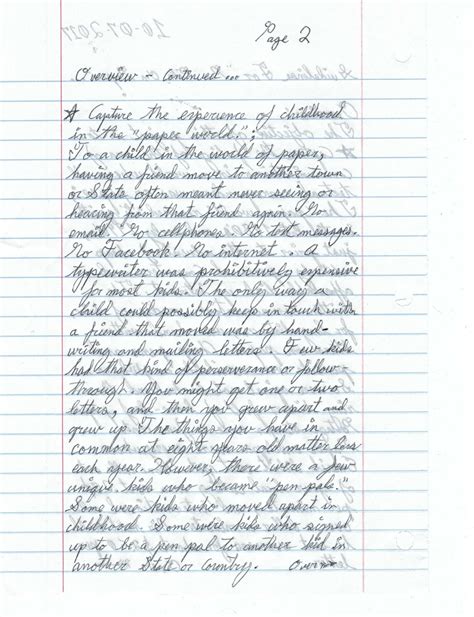 Page 2
Overview - Continued ...
☆ Capture the experience of childhood
in the "paper world.";
To a child in the world of paper,
having a friend move to another town
or State often meant never seeing or
hearing from that friend again. No
email. No cellphones. No text messages.
No Facebook. No internet. A
typewriter was prohibitively expensive
for most kids. The only way a
child could possibly keep in touch with
a friend that moved was by hand-
writing and mailing letters. Few kids
had that kind of perserverance or follow-
through. You might get one or two
letters, and then you grew apart and
grew up. The things you have in
common at eight years old matter less
each year. However, there were a few
unique kids who became "pen pals."
Some were kids who moved apart in
childhood. Some were kids who signed
up to be a pen pal to another kid in
another State or Country. Over
10-07-2017